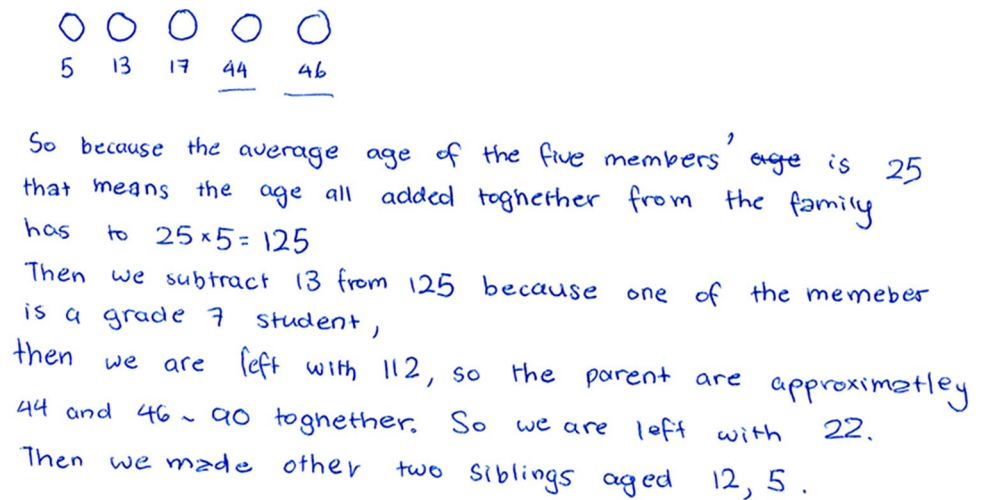 5 13 17 44 46
So because the average age of the five members' age is 25
that means the age all added toghether from the family
has to 25×5=125
Then we subtract 13 from 125 because one of the memeber
is a grade 7 student,
then we are left with 112, so the parent are approximatley
44 and 46 ~ 90 toghether. So we are left with 22.
Then we made other two siblings aged 12, 5.